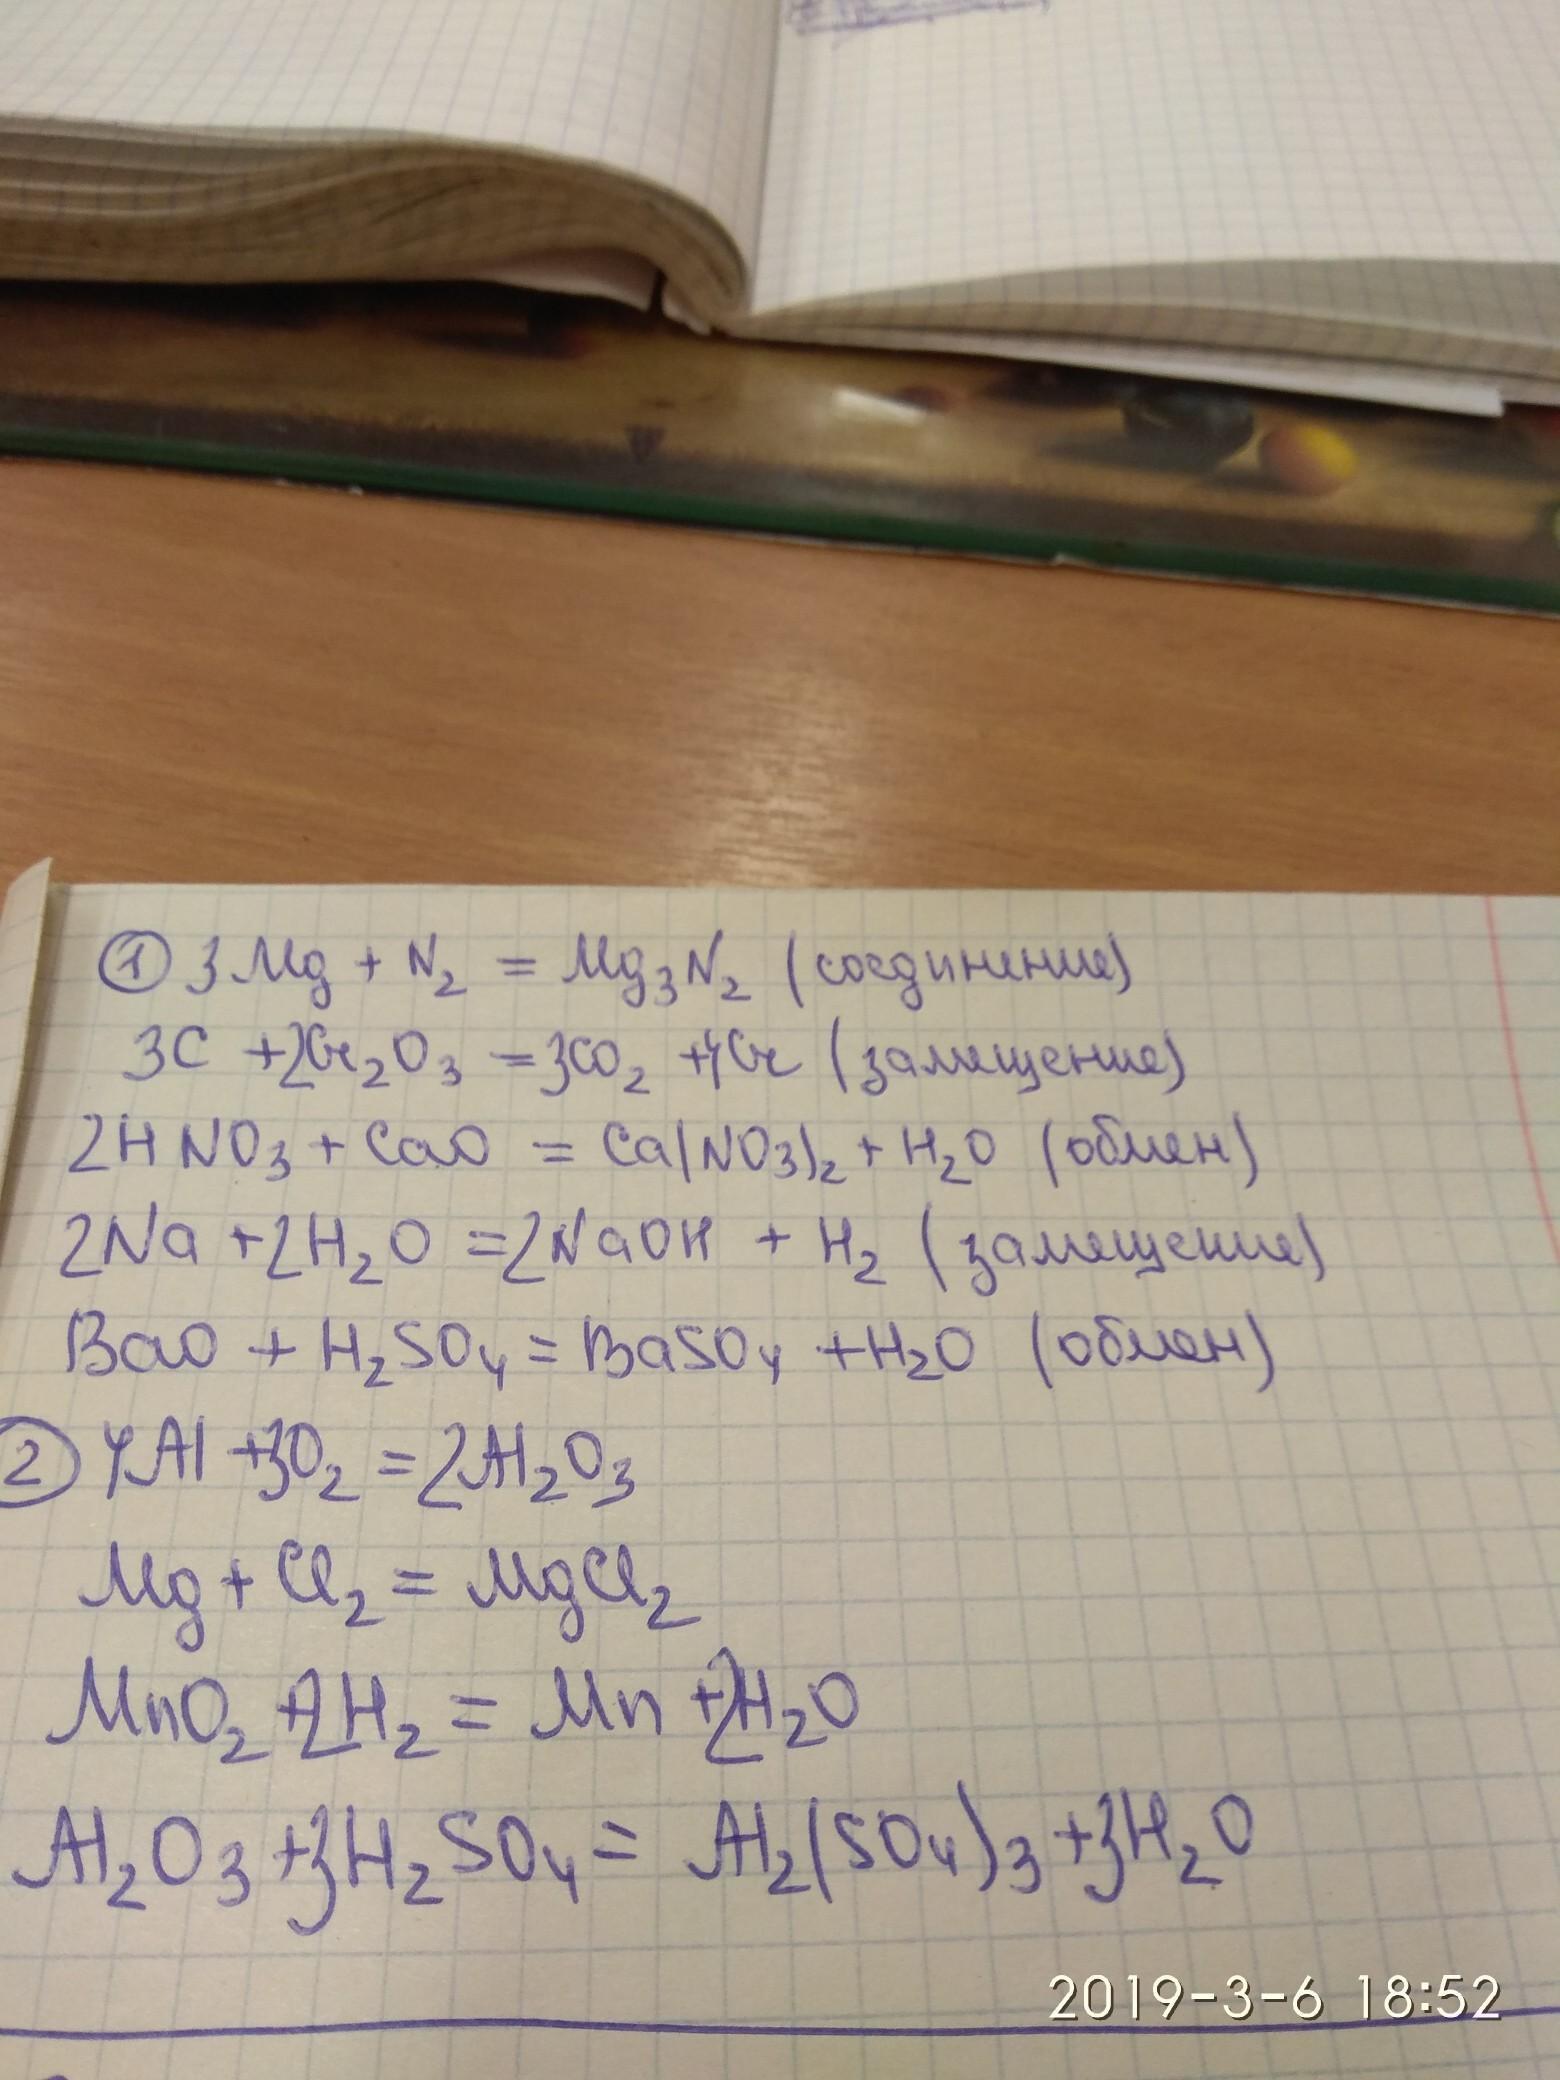 ① 3Mg + N₂ = Mg₃N₂ (соединение)
3C + 2Cr₂O₃ = 3CO₂ + 4Cr (замещение)
2HNO₃ + CaO = Ca(NO₃)₂ + H₂O (обмен)
2Na + 2H₂O = 2NaOH + H₂ (замещение)
BaO + H₂SO₄ = BaSO₄ + H₂O (обмен)
② 4Al + 3O₂ = 2Al₂O₃
Mg + Cl₂ = MgCl₂
MnO₂ + 2H₂ = Mn + 2H₂O
Al₂O₃ + 3H₂SO₄ = Al₂(SO₄)₃ + 3H₂O
2019-3-6 18:52